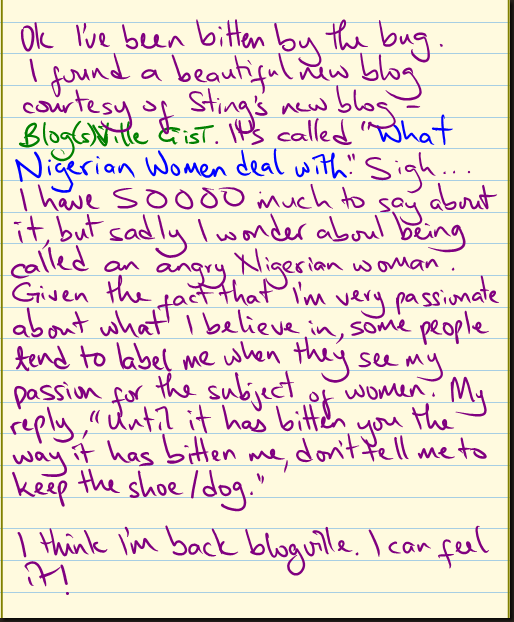 Ok I've been bitten by the bug.
I found a beautiful new blog
courtesy of Sting's new blog -
Blog(s)Ville Gist. It's called "What
Nigerian Women deal with." Sigh...
I have SOOOO much to say about
it, but sadly I wonder about being
called an angry Nigerian woman.
Given the fact that I'm very passionate
about what I believe in, some people
tend to label me when they see my
passion for the subject of women. My
reply, "Until it has bitten you the
way it has bitten me, don't tell me to
keep the shoe/dog."
I think I'm back blogville. I can feel
it!